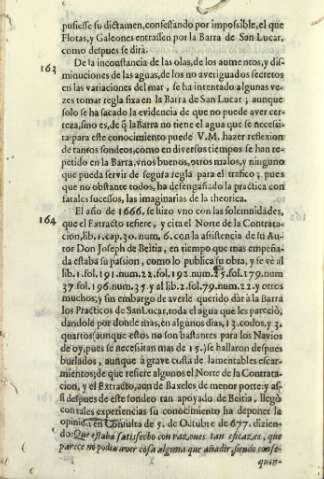 pusiesse su dictamen, confessando por impossible, el que
Flotas, y Galeones entrassen por la Barra de San Lucar,
como despues se dirà.
163
De la inconstancia de las olas, de los aumentos, y dis-
minuciones de las aguas, de los no averiguados secretos
en las variaciones del mar, se ha intentado algunas ve-
zes tomar regla fixa en la Barra de San Lucar; aunque
solo se ha sacado la evidencia de que no puede aver cer-
teza, sino es, de q̃ la Barra no tiene el agua que se necessi-
ta para este conocimiento puede V.M. hazer reflexion
de tantos sondeos, como en diversos tiempos se han re-
petido en la Barra, vnos buenos, otros malos, y ninguno
que pueda servir de segura regla para el trafico; pues
que no obstante todos, ha desengañado la practica con
fatales sucesos, las imaginarias de la theorica.
164
El año de 1666. se hizo vno con las solemnidades,
que el Extracto refiere, y cita el Norte de la Contrata-
cion, lib. 1. cap. 30. num. 6. con la assistencia de su Au-
tor Don Joseph de Beitia, en tiempo que mas empeña-
da estaba su passion, como lo publica su obra, y se vè al
lib. 1. fol. 191. num. 22. fol. 192. num. 25. fol. 179. num
37. fol. 196. num. 35. y al lib. 2. fol. 79. num. 22. y otros
muchos; y sin embargo de averle querido dàr à la Barra
los Practicos de San Lucar, toda el agua que les pareciò,
dandole por donde mas, en algunos dias, 13. codos, y 3.
quartos (aunque estos no son bastantes para los Navios
de oy, pues se necessitan mas de 15.) se hallaron despues
burlados, aunque à grave costa de lamentables escar-
mientos; de que refiere algunos el Norte de la Contrata-
cion, y el Extracto, aun de Baxeles de menor porte: y as-
si despues de este sondeo tan apoyado de Beitia, llegò
con tales experiencias su conocimiento ha deponer la
opinion en Consulta de 5. de Octubre de 677. dizien-
do: Que estaba satisfecho con razones tan eficazes, que
parece no podia aver cosa alguna que añadir, siendo conse-
quen-